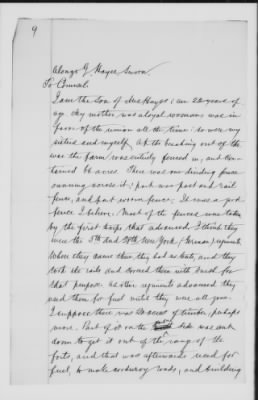 9
Alonzo G Hayes sworn.
To Council.
I am the son of Mrs Hayes; am 22 years of
age. My mother was a loyal woman & was in
favor of the union all the time: so were my
sisters and myself. At the breaking out of the
war the farm was entirely fenced in, and con-
tained 66 acres. There was one dividing fence
running across it; part was post and rail
fence, and part worm fence. It was a good
fence I believe. Most of the fences was taken
by the first troops that advanced I think they
were the 5th and 29th New York (German) regiments.
When they came there they had no tents, and they
took the rails and covered them with brush for
that purpose. As other regiments advanced they
used them for fuel until they were all gone.
I suppose there was 20 acres of timber, perhaps
more. Part of it on the side was cut
down to get it out of the range of the
forts, and that was afterwards used for
fuel, to make corduroy roads, and building